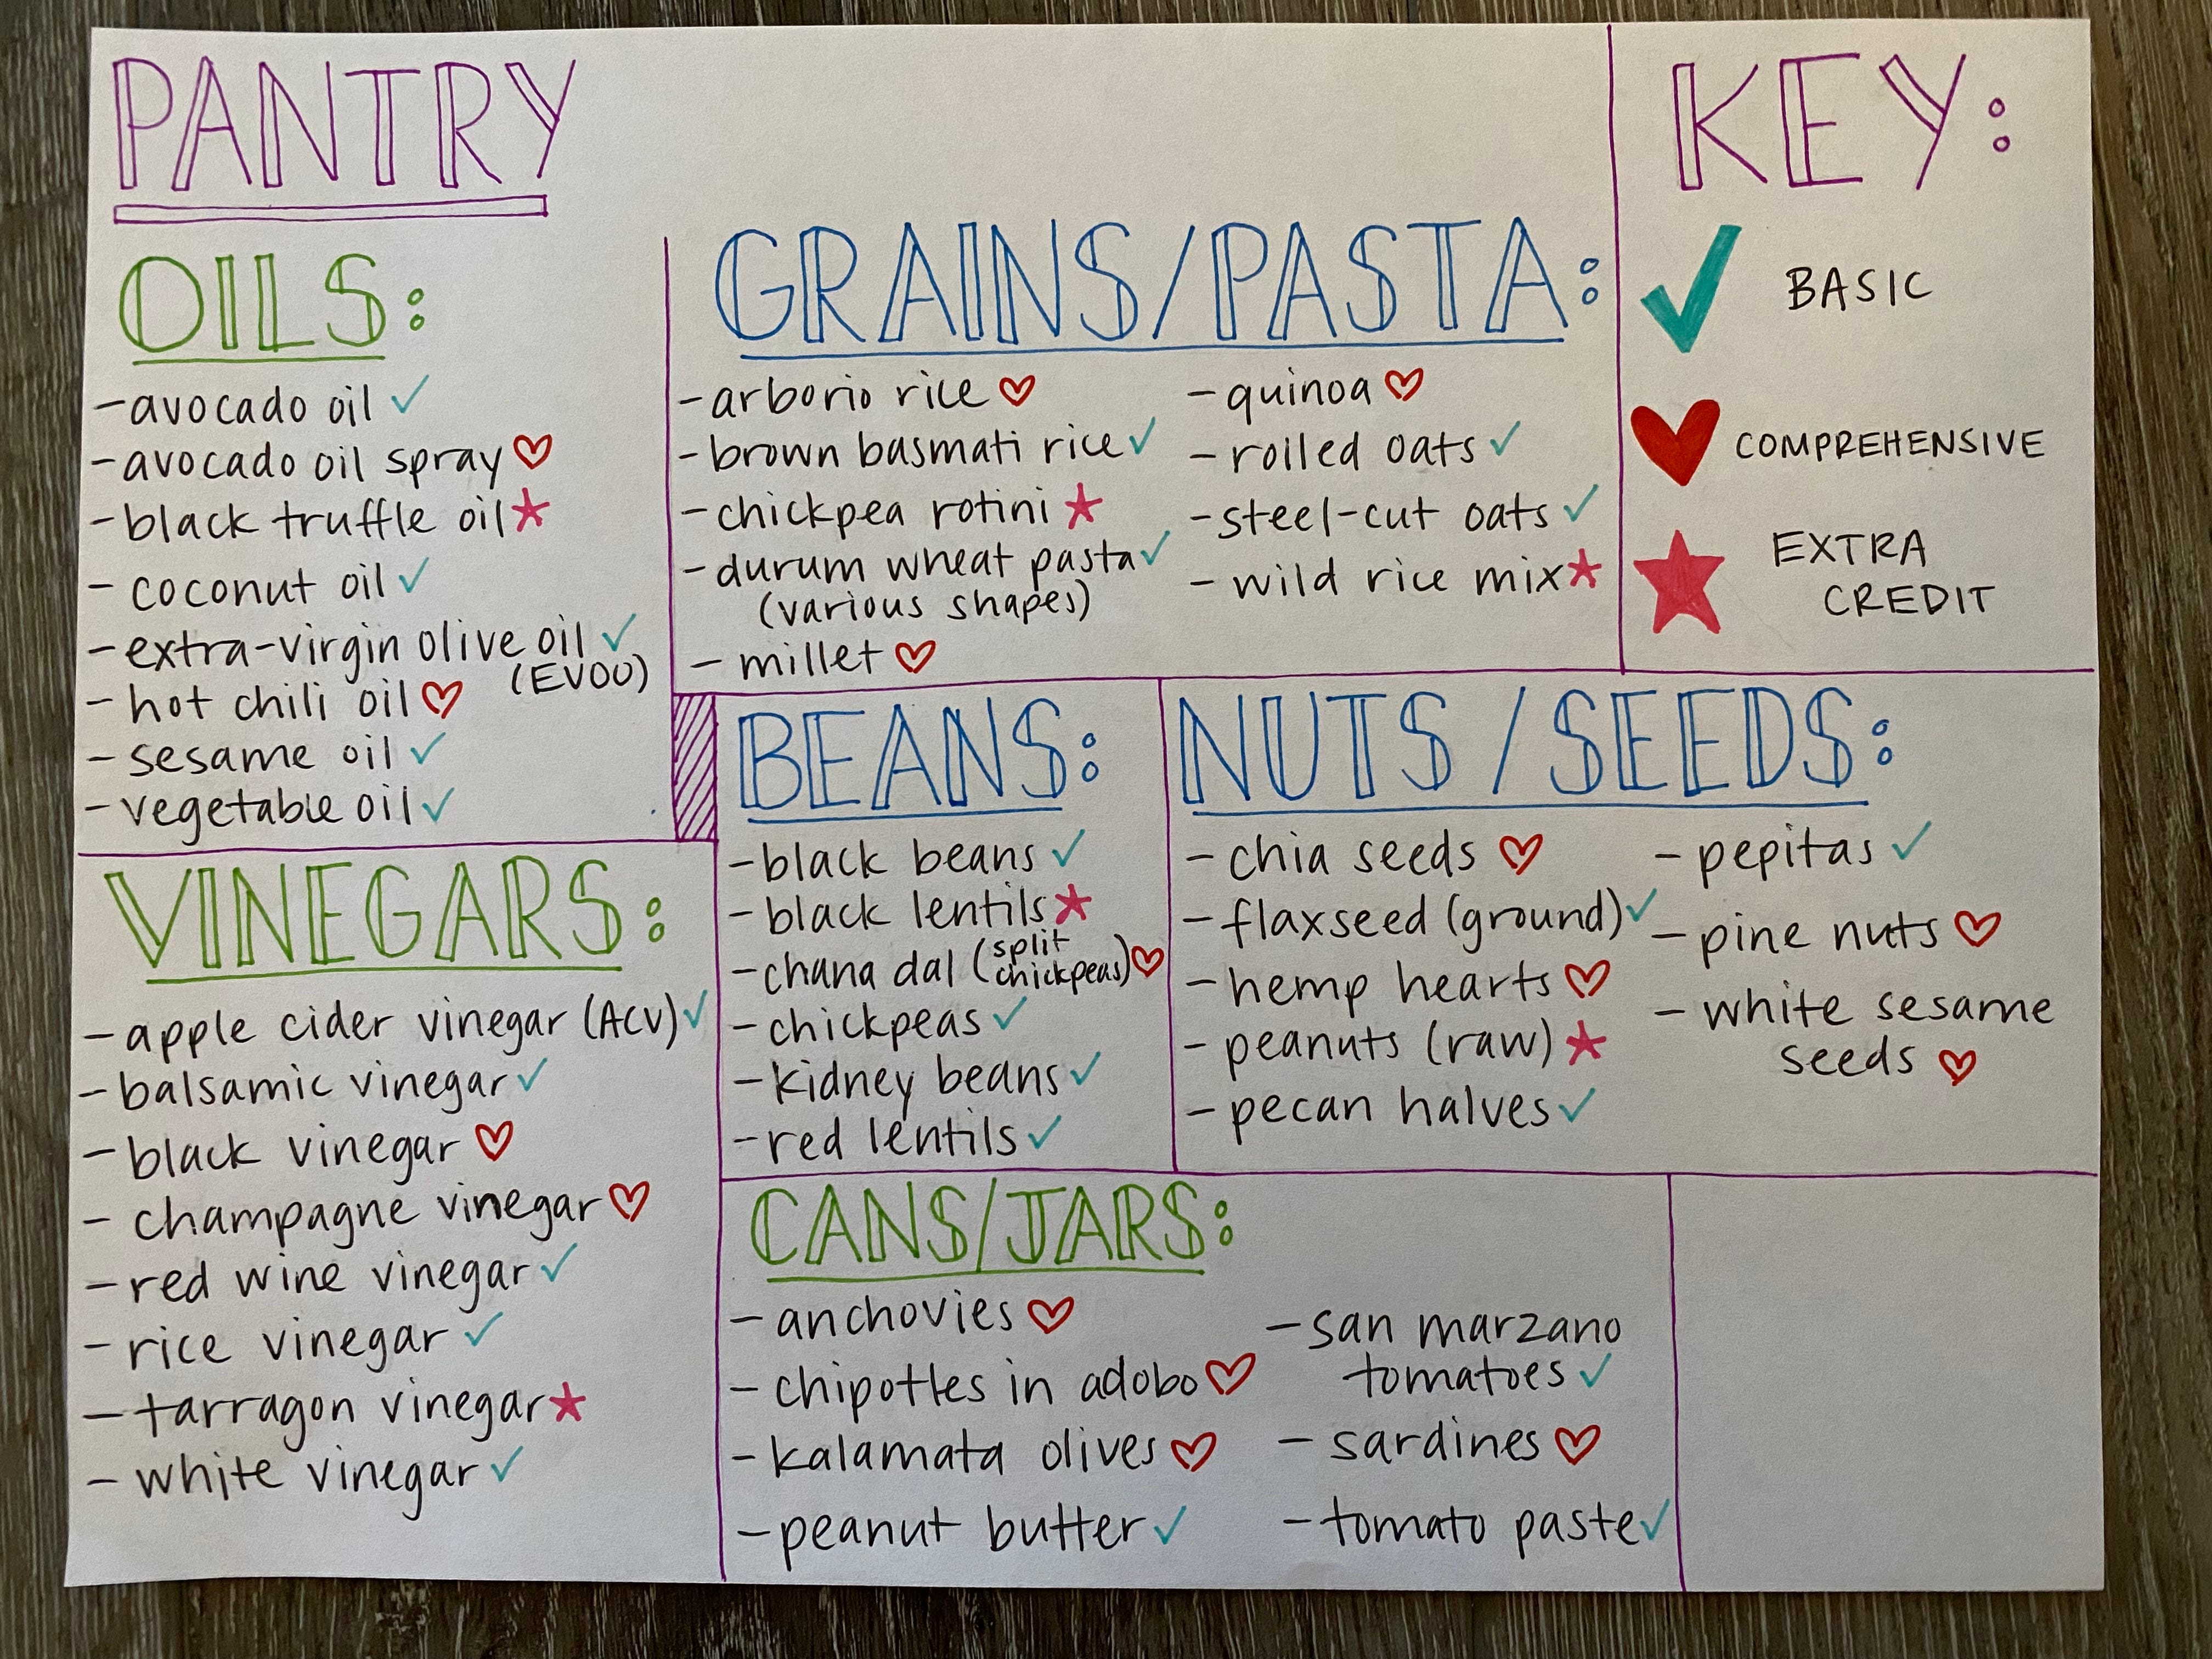 PANTRY
OILS:
-avocado oil ✓
-avocado oil spray ♡
-black truffle oil *
-coconut oil ✓
-extra-virgin olive oil ✓
(EVOO)
-hot chili oil ♡
-sesame oil ✓
-vegetable oil ✓
VINEGARS:
-apple cider vinegar (ACV) ✓
-balsamic vinegar ✓
-black vinegar ♡
-champagne vinegar ♡
-red wine vinegar ✓
-rice vinegar ✓
-tarragon vinegar *
-white vinegar ✓
GRAINS/PASTA:
-arborio rice ♡
-brown basmati rice ✓
-chickpea rotini *
-durum wheat pasta ✓
(various shapes)
-millet ♡
-quinoa ♡
-rolled oats ✓
-steel-cut oats ✓
-wild rice mix *
KEY:
✓ BASIC
♥ COMPREHENSIVE
★ EXTRA
CREDIT
BEANS:
-black beans ✓
-black lentils *
-chana dal (split chickpeas) ♡
-chickpeas ✓
-kidney beans ✓
-red lentils ✓
NUTS/SEEDS:
-chia seeds ♡
-flaxseed (ground) ✓
-hemp hearts ♡
-peanuts (raw) *
-pecan halves ✓
-pepitas ✓
-pine nuts ♡
-white sesame
seeds ♡
CANS/JARS:
-anchovies ♡
-chipotles in adobo ♡
-kalamata olives ♡
-peanut butter ✓
-san marzano
tomatoes ✓
-sardines ♡
-tomato paste ✓